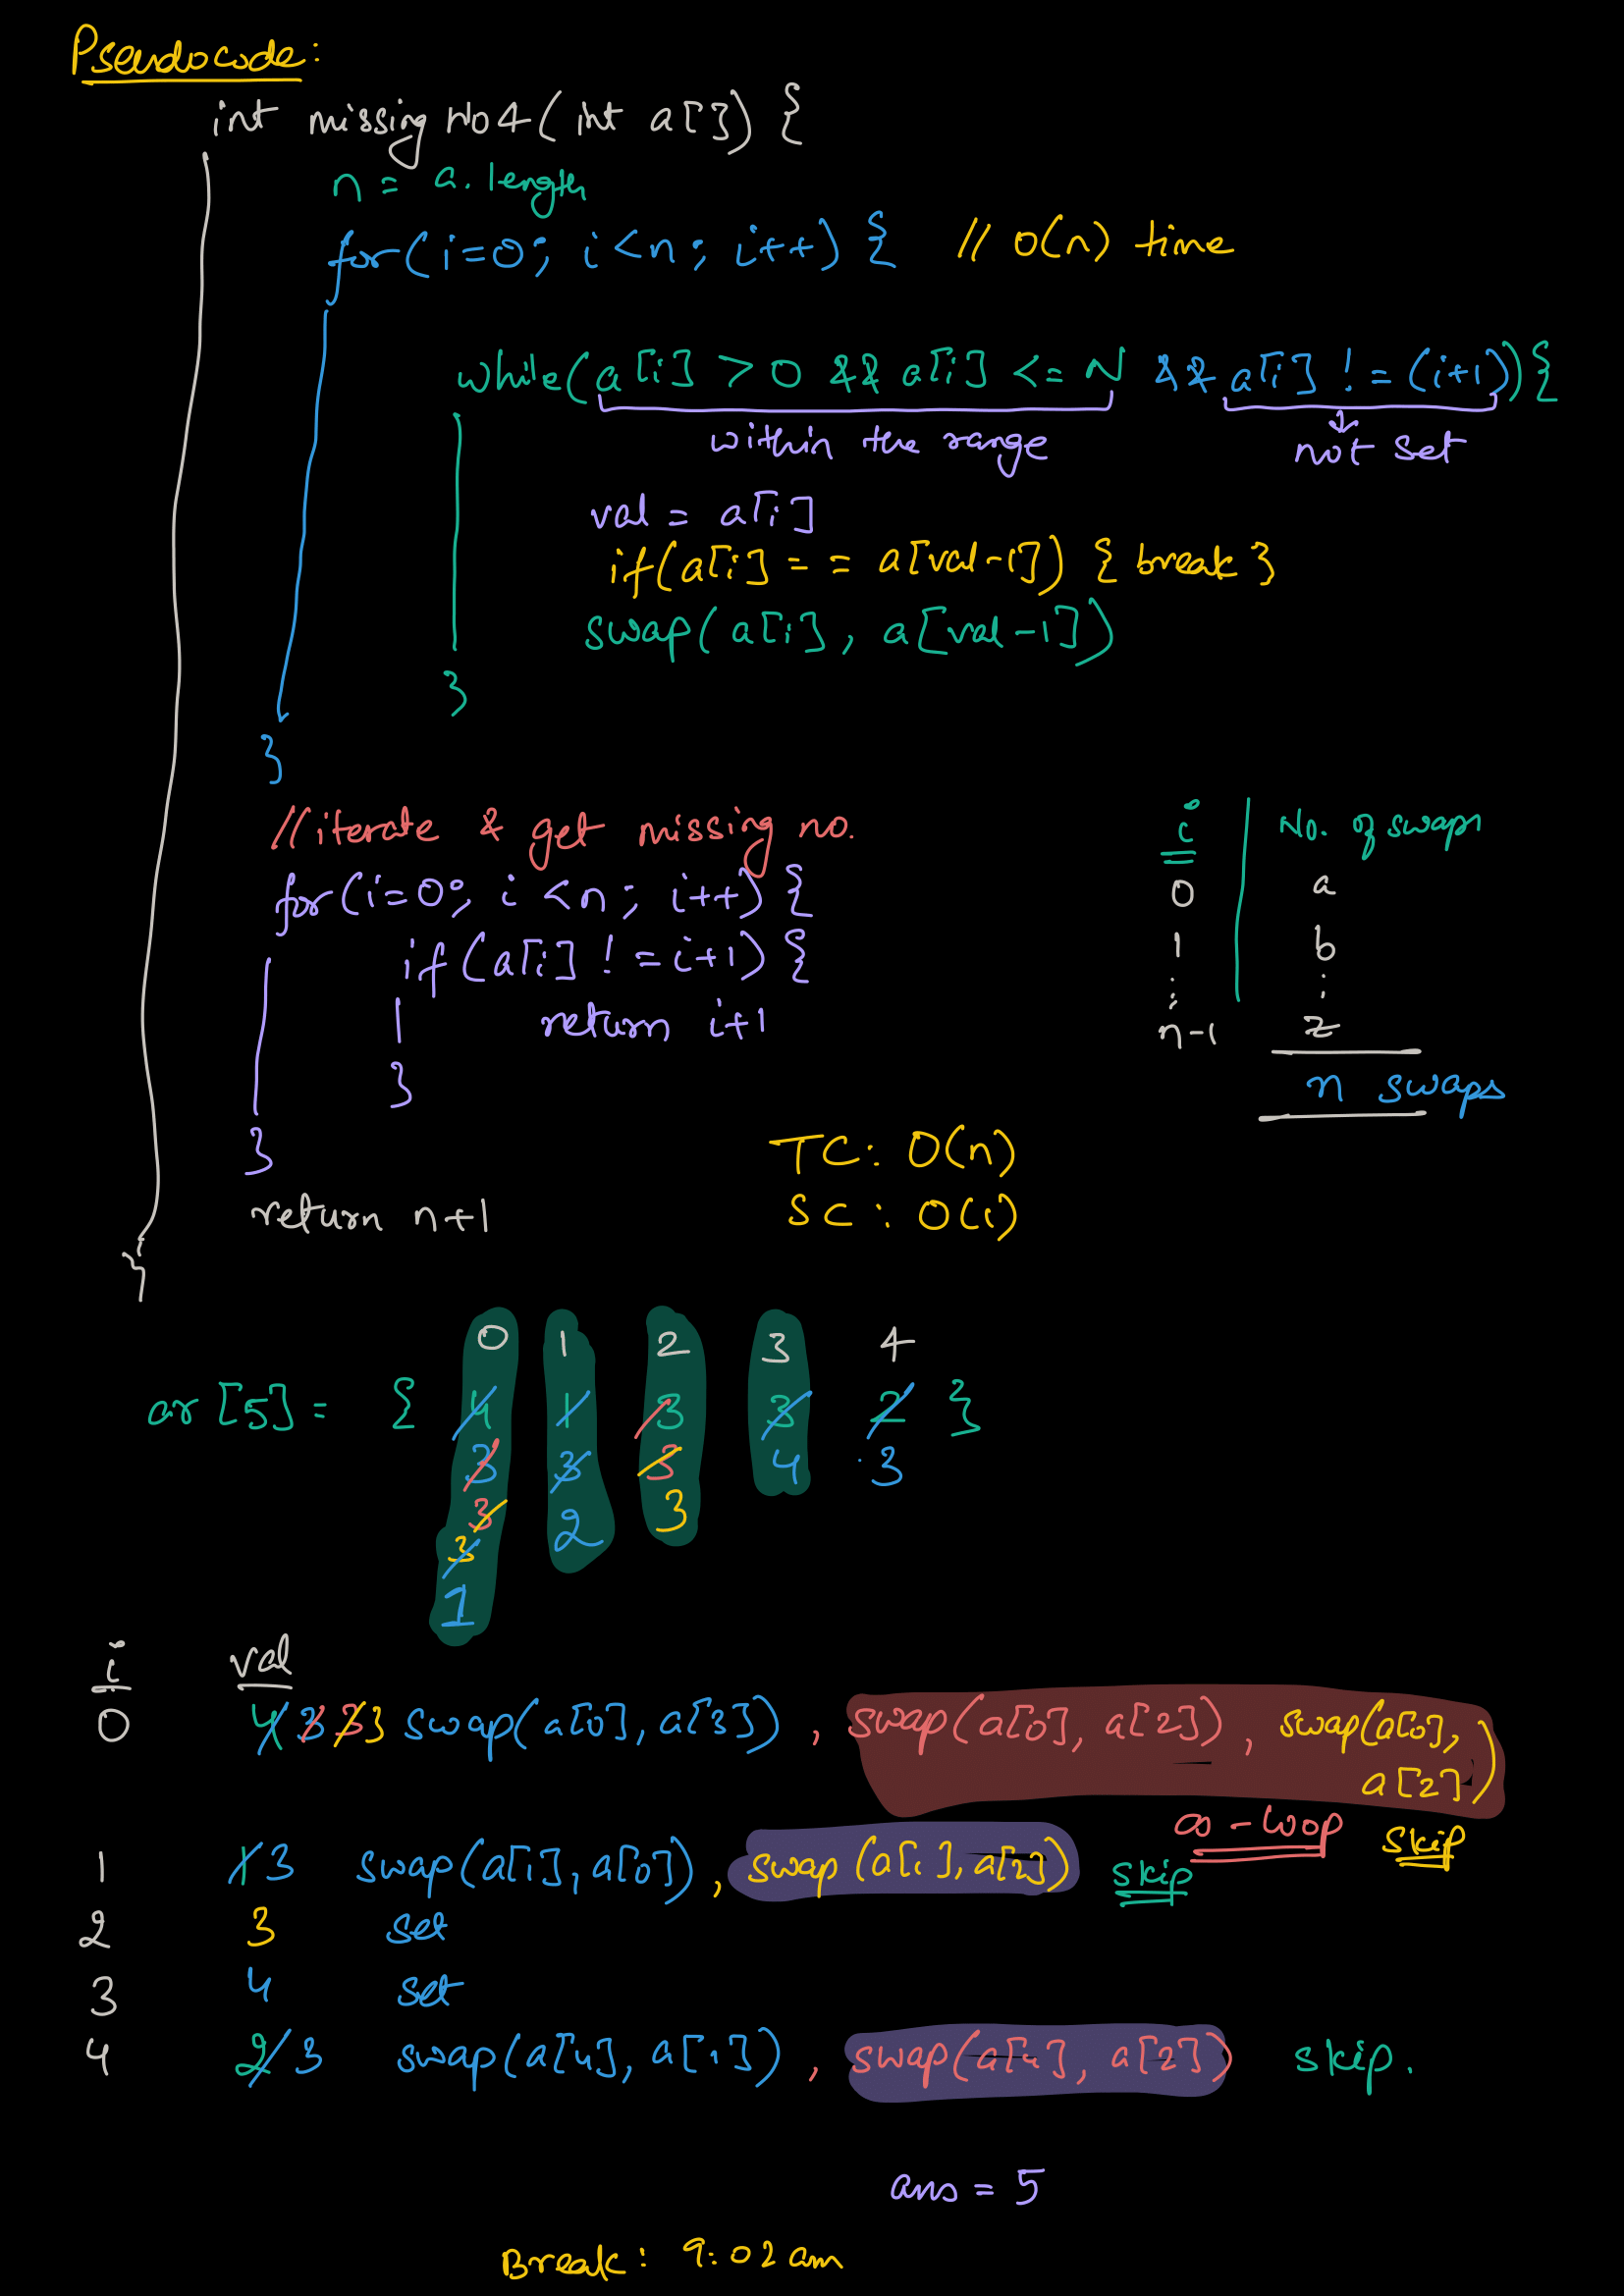 Pseudocode:
int missingNo4(int a[]) {
n = a.length
for(i=0; i<n; i++) { // O(n) time
while(a[i] > 0 && a[i] <= N && a[i] != (i+1)){
within the range not set
val = a[i]
if(a[i] == a[val-1]) { break }
swap(a[i], a[val-1])
}
}
//iterate & get missing no.
for(i=0; i<n; i++) {
if(a[i] != i+1) {
return i+1
}
}
return n+1
}
i No. of swaps
0 a
1 b
⋮ ⋮
n-1 z
n swaps
TC: O(n)
SC: O(1)
0 1 2 3 4
ar[5] = { 4 1 3 3 2 }
3 3 3 4 3
3 2 3
3
1
i val
0 4 3 3 3 swap(a[0], a[3]), swap(a[0], a[2]), swap(a[0], a[2])
∞-loop skip
1 1 3 swap(a[1], a[0]), swap(a[1], a[2]) skip
2 3 set
3 4 set
4 2 3 swap(a[4], a[1]), swap(a[4], a[2]) skip.
ans = 5
Break: 9:02am